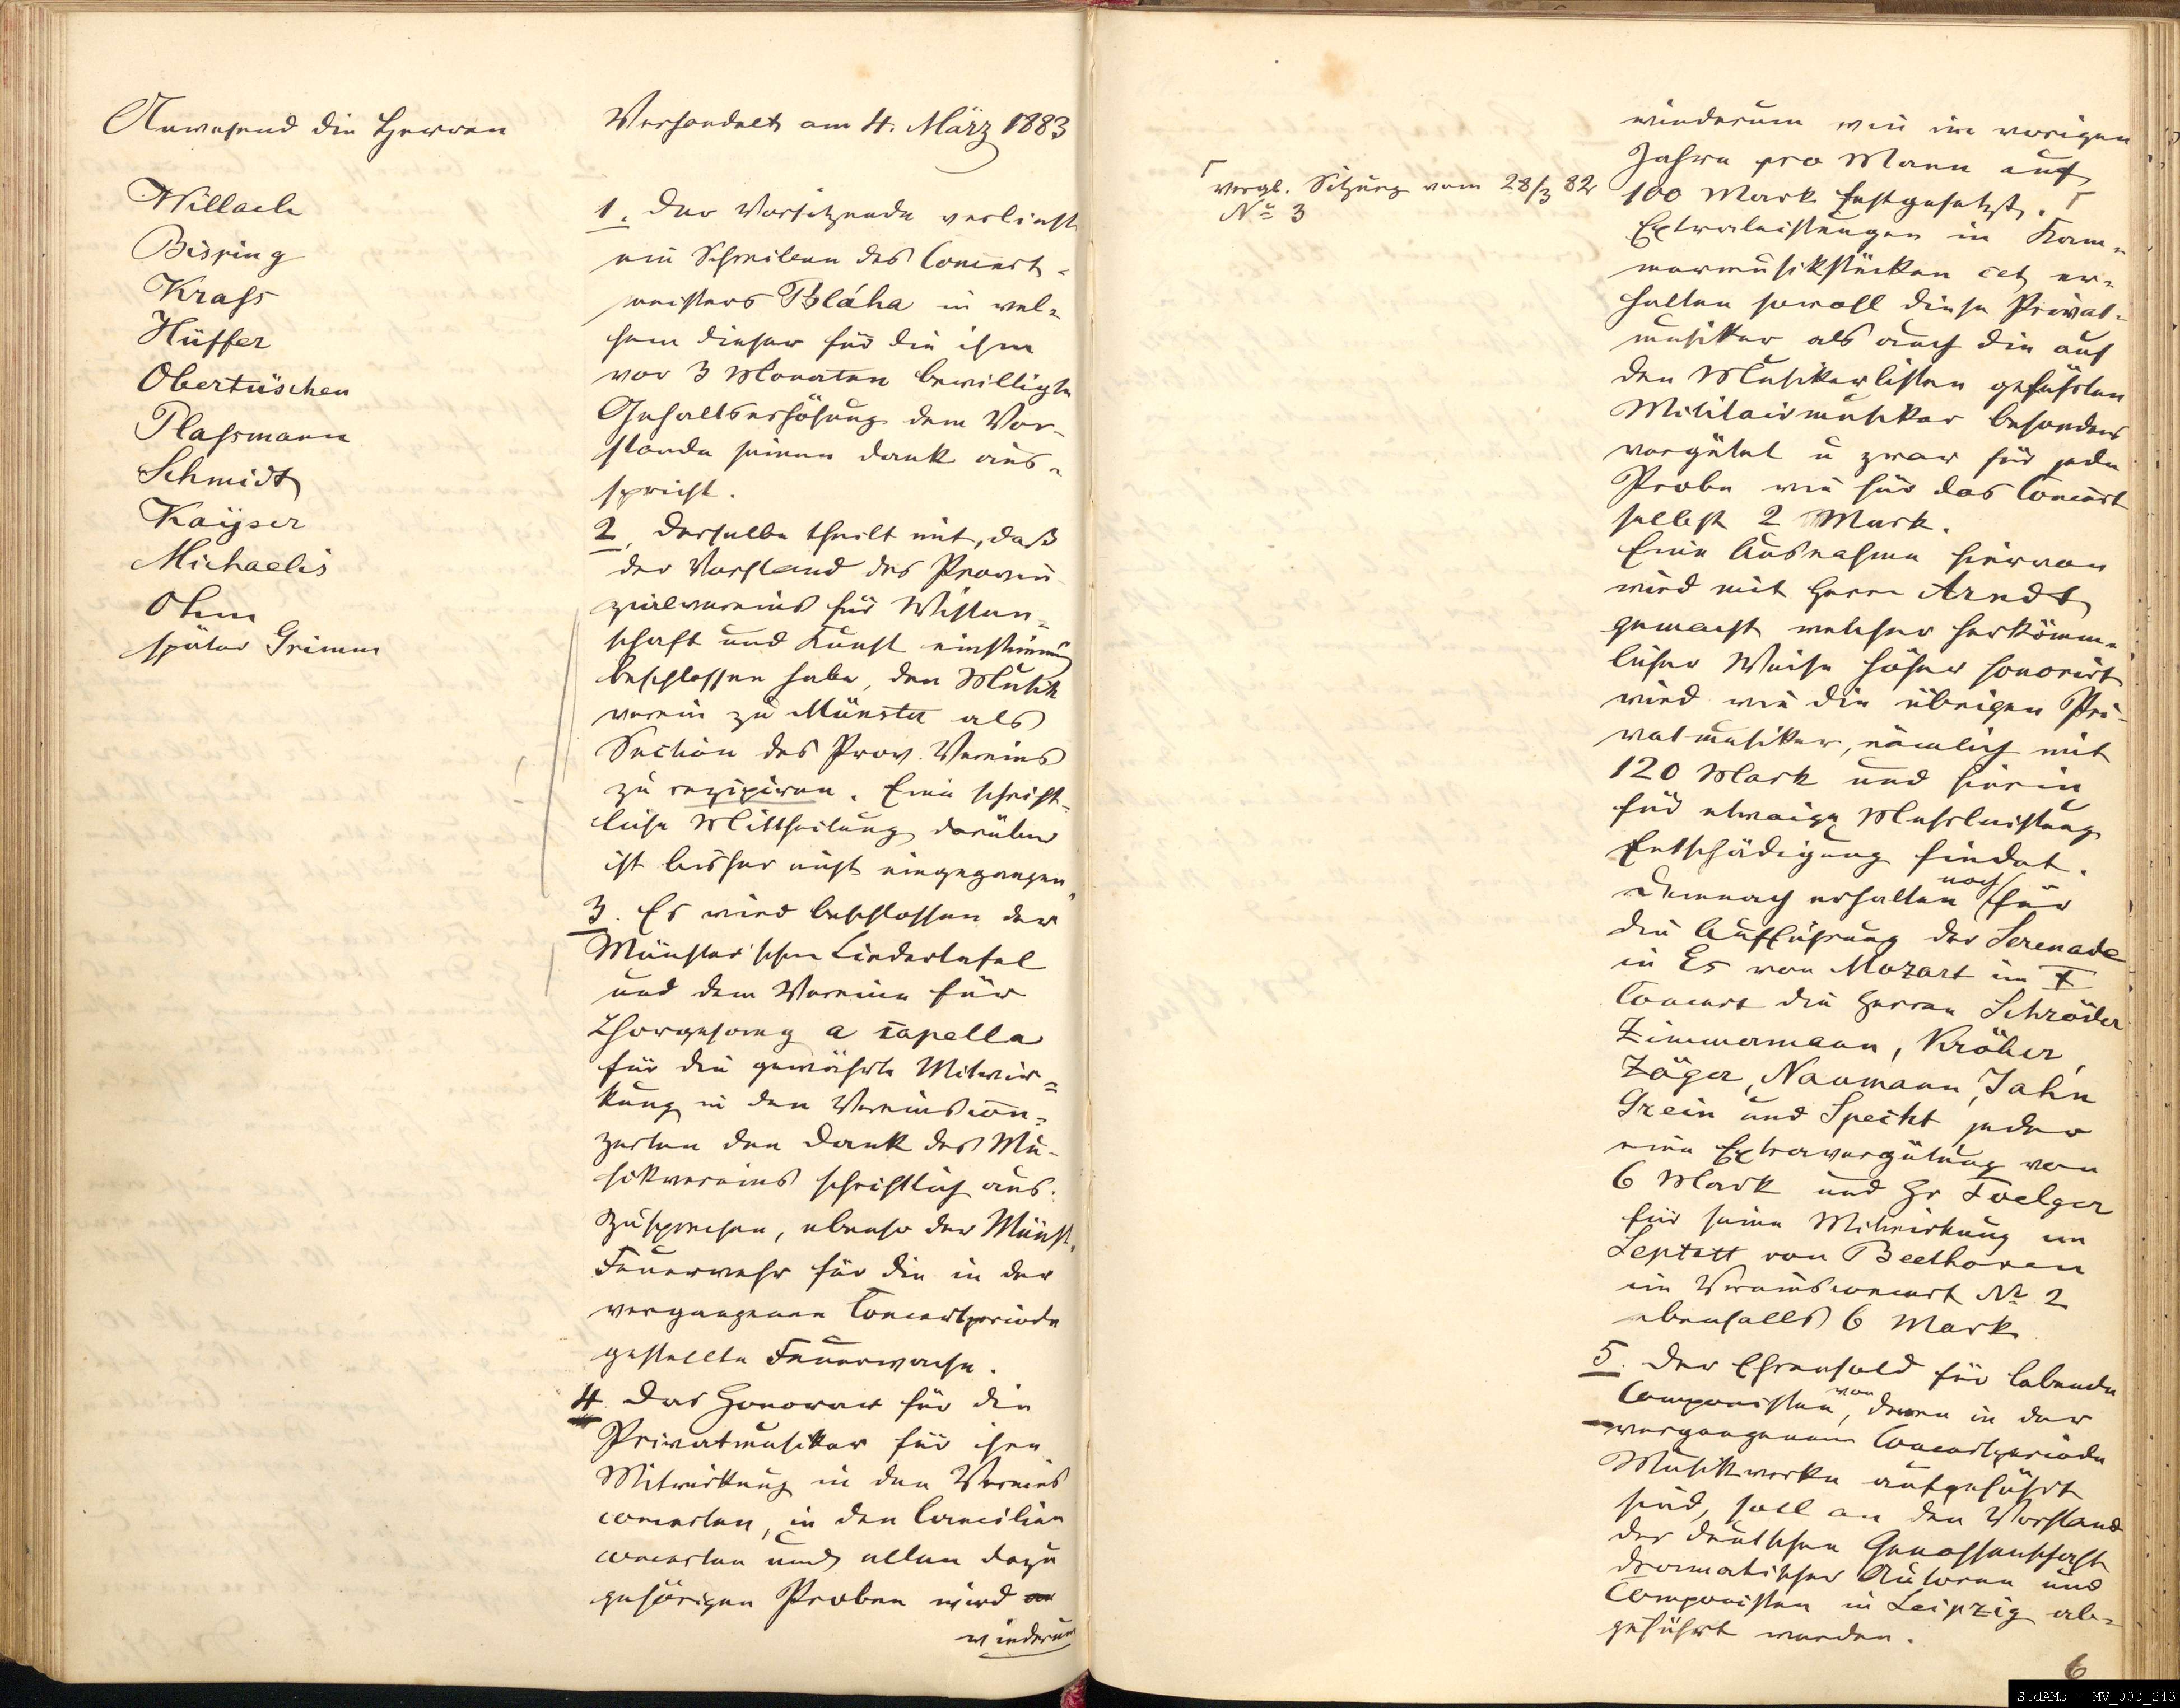 Anwesend die Herren
Willach
Bisping
Krass
Hüffer
Obertüschen
Plassmann
Schmidt
Kayser
Michaelis
Ohm
später Grimm
Verhandelt am 4. März 1883
1. Der Vorsitzende verliest
ein Schreiben des Concert-
meisters Bláha in wel-
chem dieser für die ihm
vor 3 Monaten bewilligte
Gehaltserhöhung dem Vor-
stande seinen Dank aus-
spricht.
2. Derselbe theilt mit, daß
der Vorstand des Provin-
zialvereins für Wissen-
schaft und Kunst einstimmig
beschlossen habe, den Musik
verein zu Münster als
Section des Prov. Vereins
zu rezipiren. Eine schrift-
liche Mittheilung darüber
ist bisher nicht eingegangen.
3. Es wird beschlossen der
Münster'schen Liedertafel
und dem Vereine für
Chorgesang a capella
für die gewährte Mitwir-
kung in den Vereinscon-
zerten den Dank des Mu-
sikvereins schriftlich aus-
zusprechen, ebenso der Münst.
Feuerwehr für die in der
vergangenen Concertperiode
gestellte Feuerwache.
4. Das Honorar für die
Privatmusiker für ihre
Mitwirkung in den Vereins
concerten, in den Caecilien
concerten und allen dazu
gehörigen Proben wird
wiederum
vergl. Sitzung vom 28/3 82
No 3
wiederum wie im vorigen
Jahre pro Mann auf
100 Mark festgesetzt.
Extraleistungen in Kam-
mermusikstücken cet er-
halten sowohl diese Privat-
musiker als auch die auf
den Musikerlisten geführten
Militairmusiker besonders
vergütet u zwar für jede
Probe wie für das Concert
selbst 2 Mark.
Eine Ausnahme hiervon
wird mit Herrn Arndt
gemacht welcher herkömm-
licher Weise höher honorirt
wird wie die übrigen Pri-
vatmusiker, nämlich mit
120 Mark und hierin
für etwaige Mehrleistung
Entschädigung findet.
Demnach erhalten noch für
die Aufführung der Serenade
in Es von Mozart im X
Concert die Herren Schröder
Zimmermann, Kröber,
Jäger, Naumann, Jahn
Grein und Specht jeder
eine Extravergütung von
6 Mark und Hr Foelger
für seine Mitwirkung im
Septett von Beethoven
im Vereinsconcert No 2
ebenfalls 6 Mark
5. Der Ehrensold für lebende
Componisten, von denen in der
vergangenen Concertperiode
Musikwerke aufgeführt
sind, soll an den Vorstand
der deutschen Genossenschaft
dramatischer Autoren und
Componisten in Leipzig ab-
geführt werden.
6
StdAMs - MV_003_243